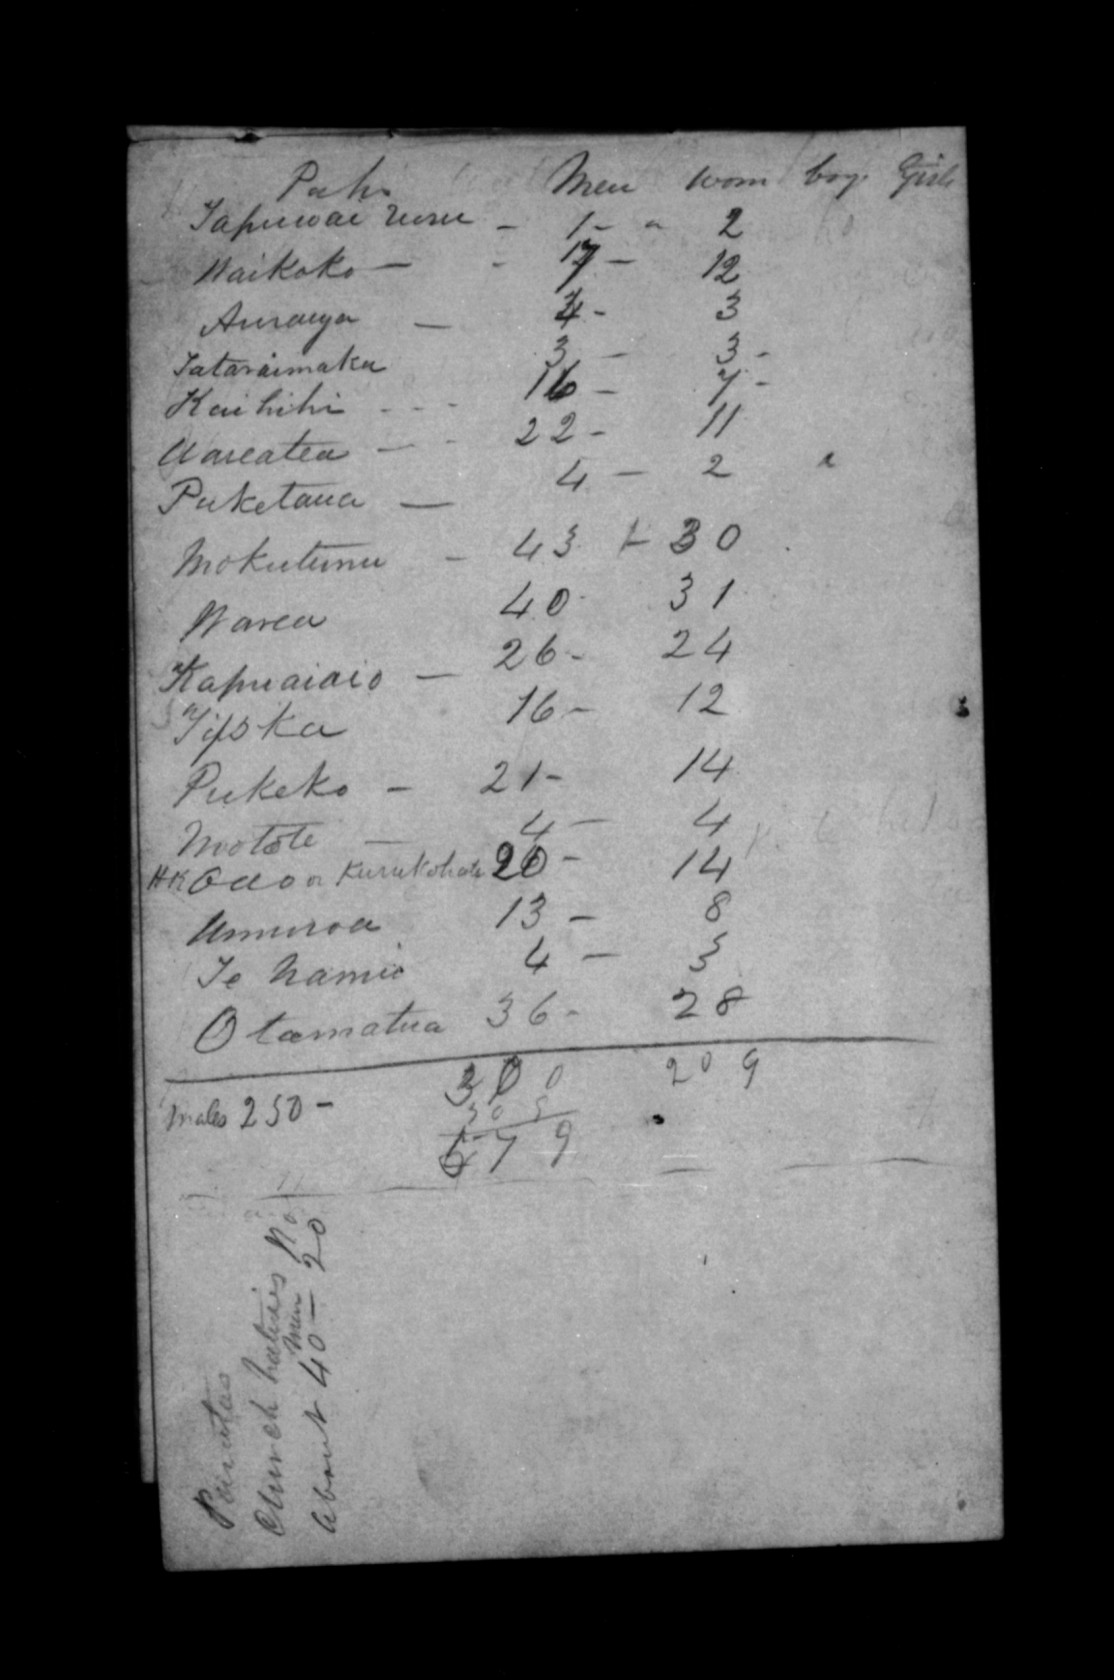 Pahs Men wom boy. Girls
Tapuwae ruru - 1 - 2
Waikoko - 17 - 12
Auraya - 4 - 3
Tataraimaka 3 - 3 -
Kaihihi - - - 16 - 7 -
Wareatea - - 22 - 11
Puketaua - 4 - 2
Mokutunu - 43 - 30
Warea 40 31
Kapuaiaio - 26 - 24
Tipoka 16 - 12
Pukeko - 21 - 14
Motote - 4 - 4
HK Oao or Kurukohatu 20 - 14
Umuroa 13 - 8
Te Namie 4 - 3
Otamatua 36 - 28
300 209
Males 250 -
579
Church natives No
Men
About 40 - 20